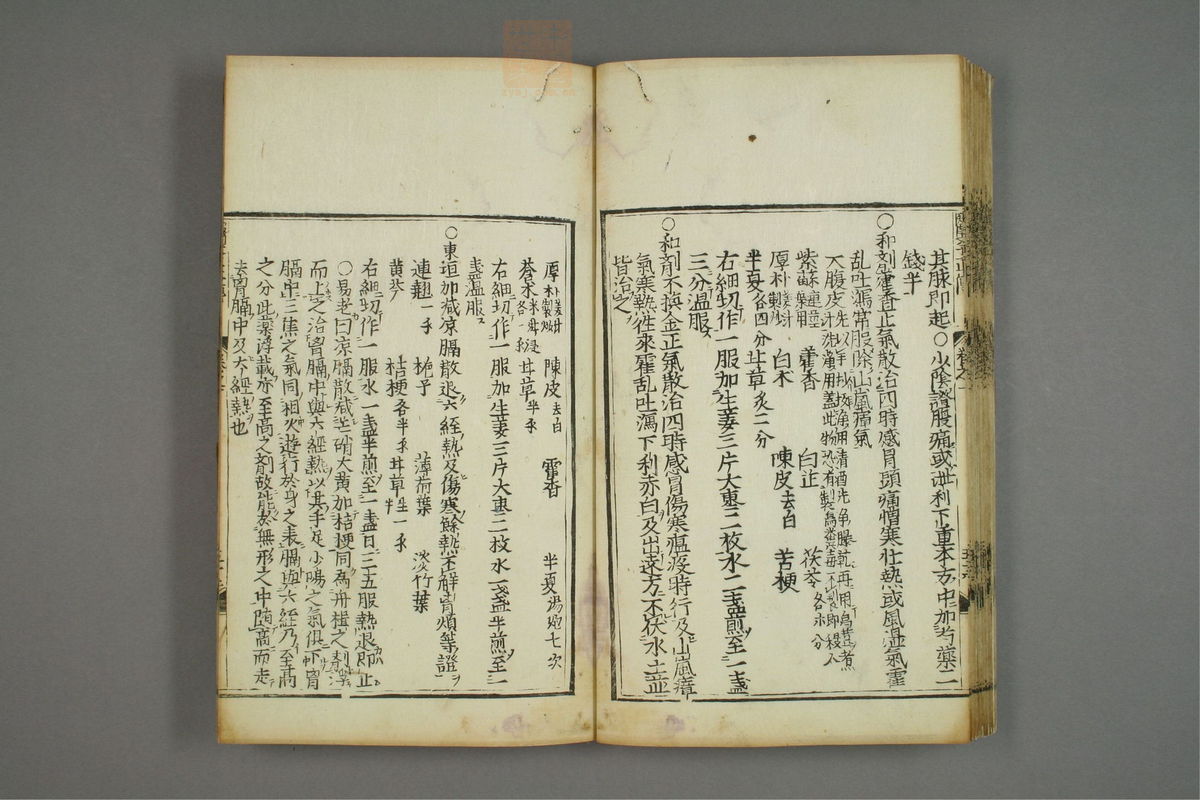 其脉即起○少陰證腹痛或泄利下重本方中加芍藥二
錢半
○和剤藿香正氣散治四時感冒頭痛憎寒壮熱或風温氣霍
乱吐瀉常服除山嵐瘴氣
大腹皮
紫蘇
藿香
白芷
茯苓各
分
厚朴姜汁製炒
白朮
陳皮去白
苦梗
半夏各四分
甘草炙二分
右細切作一服加生姜三片大棗二枚水二盞煎至一盞
三分温服
○和剤不換金正氣散治四時感冒傷寒瘟疫時行及山嵐瘴
氣寒熱徃來霍乱吐瀉下利赤白及出遠方不伏水土並
皆治之
厚朴姜汁製炒
陳皮去白
藿香
半夏湯炮七次
蒼朮米泔浸各一
甘草半
右細切作一服加生姜三片大棗二枚水一盞半煎至一
盞温服
○東垣加减凉膈散退六經熱及傷寒餘熱不解胷煩等證
連翹一
梔子
薄荷葉
淡竹葉
黄芩
桔梗各半
甘草生一
右細切作一服水一盞半煎至一盞日三五服熱退即止
○易老曰凉膈散减芒硝大黄加桔梗同為舟楫之剤浮
而上之治胷膈中與六經熱以其手足少陽之氣俱下胷
膈中三焦之氣同相火遊行於身之表膈與六經乃至高
之分此藥浮載亦至高之剤故能於無形之中随高而走
去胷膈中及六經熱也